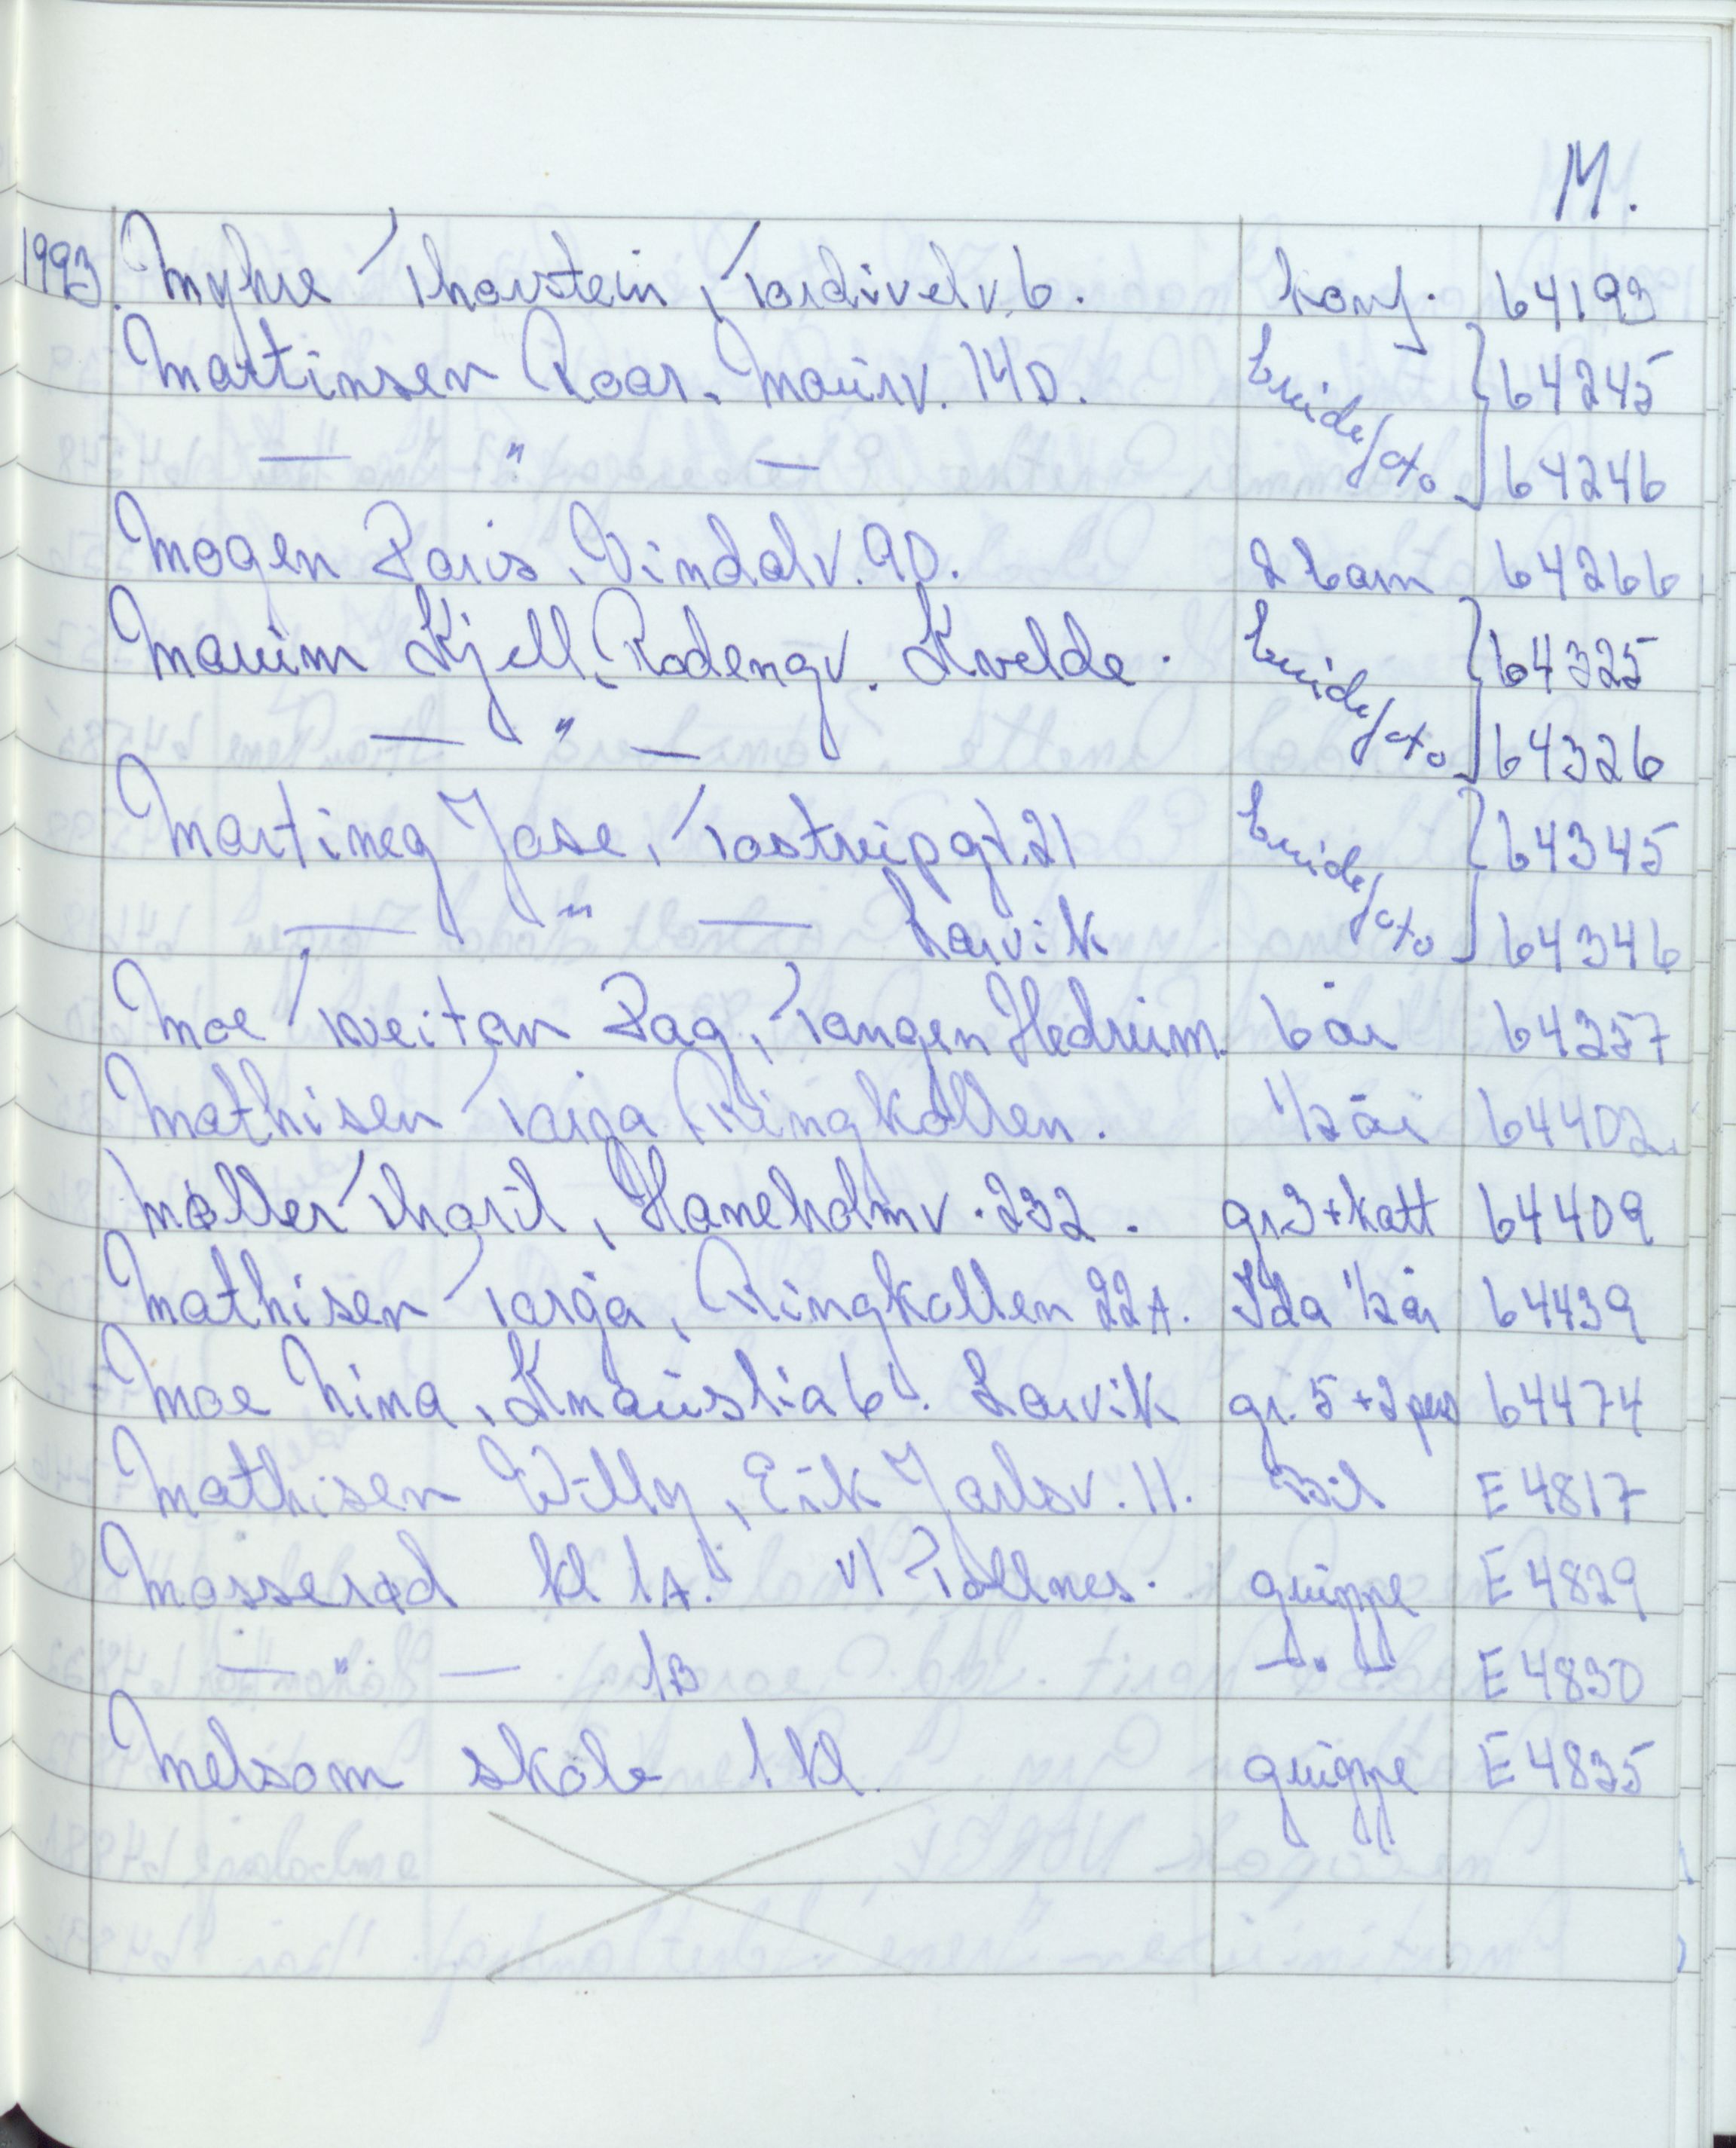 M.
1993. Myhre Thorstein, Tordivelv. 6. konf. 64193
Martinsen Roar. Maurv. 14D. brude/oto 64245
— " — 64246
Mogen Doris, Vindalv. 9D. 2 barn 64266
Mauim Kjell, Rodengv. Kvelde. brude/oto 64325
— " — 64326
Martineg Jose, Tostrupgt. 21 brude/oto 64345
— " — Larvik 64346
Moe Tveitan Dag, Tangen Hedrum. 6 år 64357
Mathisen Tarja Ringkollen. 1/2 år 64402.
Møller Thoril, Haneholmv. 232. gr. 3 + katt 64409
Mathisen Tarja, Ringkollen 22A. Ida 1/2 år 64439
Moe Nina, Knauslia 6. Larvik gr. 5 + 2 pers 64474
Mathisen Willy, Eik Jarlsv. 11. Bil E 4817
Mosserød kl 1A. v/ Tollnes. gruppe E 4829
— " — 1B — " — E 4830
Melsom skole 1 kl. gruppe E 4835